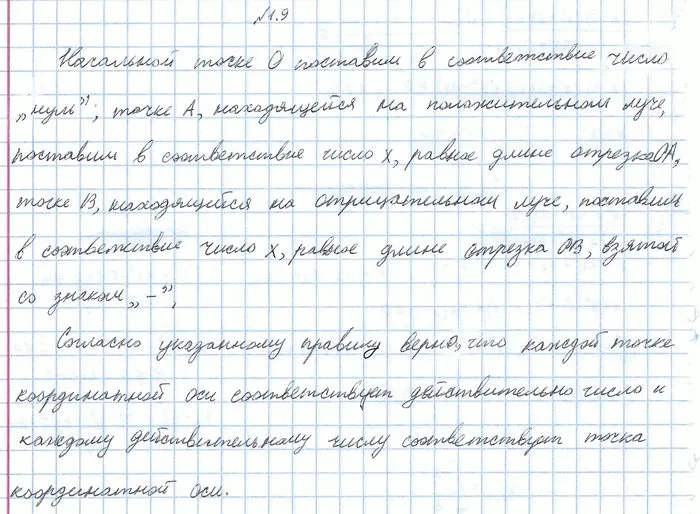 №1.9
Начальной точке O поставим в соответствие число
„нуль”; точке A, находящейся на положительном луче,
поставим в соответствие число x, равное длине отрезка OA,
точке B, находящейся на отрицательном луче, поставим
в соответствие число x, равное длине отрезка OB, взятой
со знаком „–”.
Согласно указанному правилу верно, что каждой точке
координатной оси соответствует действительно число и
каждому действительному числу соответствует точка
координатной оси.